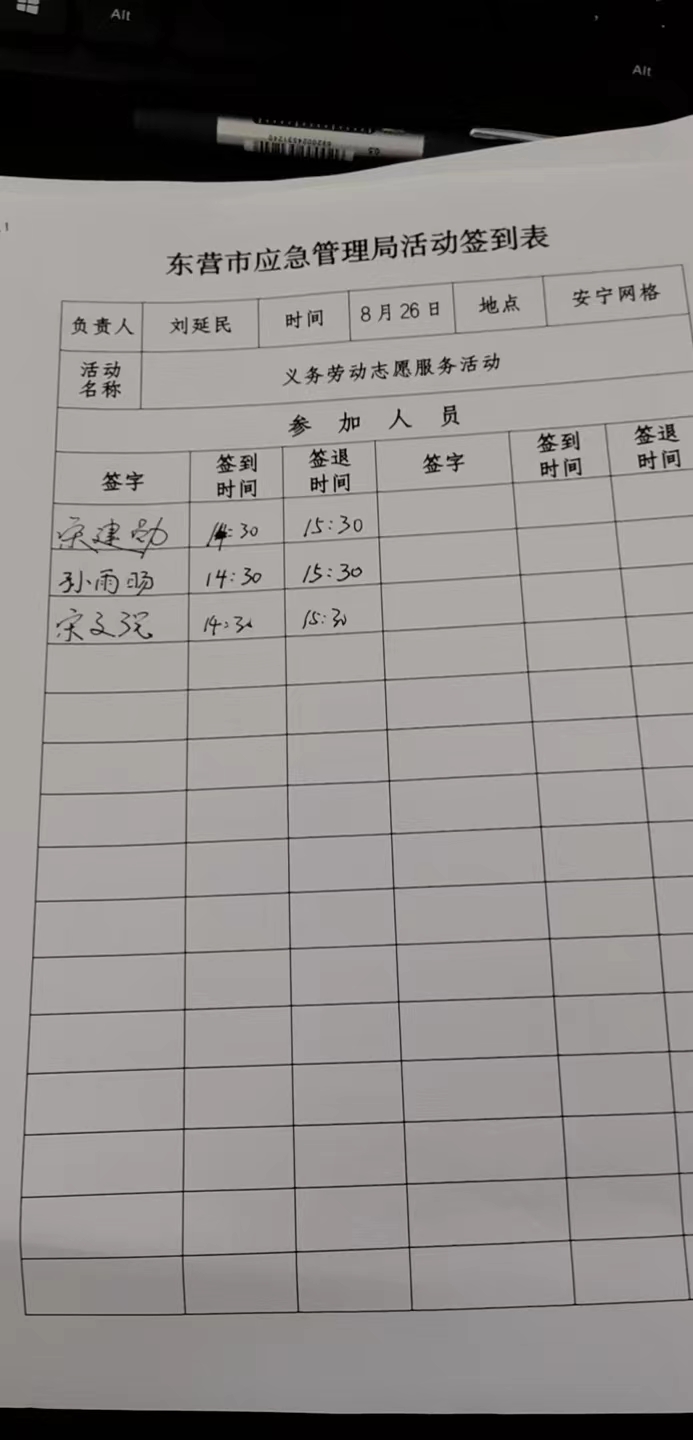 Alt
Alt
6920002453 1240
0.5
东营市应急管理局活动签到表
负责人 刘延民 时间 8月26日 地点 安宁网格
活动名称 义务劳动志愿服务活动
参加人员
签字 签到时间 签退时间 签字 签到时间 签退时间
宋建勋 14:30 15:30
孙雨旸 14:30 15:30
宋文强 14:30 15:30